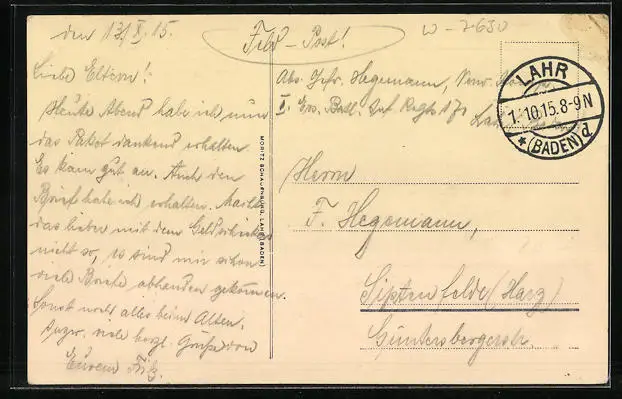 den 1.X.15.
Feld-Post!
W-7630
Liebe Eltern!
Heute Abend habe ich nun
das Paket dankend erhalten.
Es kam gut an. Auch den
Brief habe ich erhalten.
das lieber mit dem Geld schicken
nicht so, es sind mir schon
viele Briefe abhanden gekommen.
Sonst noch alles beim Alten.
viele herzl. Grüße von
Eurem Fritz.
Abs. Gefr. Hegemann,
I. Ers. Batl. Inf. Regts 171
LAHR
1.10.15.8-9N
* (BADEN) d
MORITZ SCHAUENBURG, LAHR (BADEN)
Herrn
F. Hegemann,
Siptenfelde (Harz)
Güntersbergerstr.